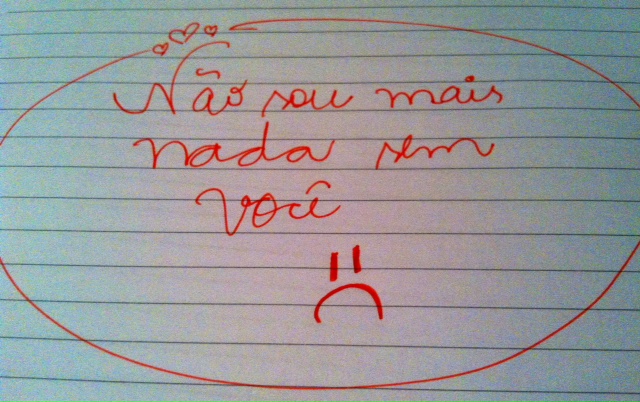 Não sou mais
nada sem
você